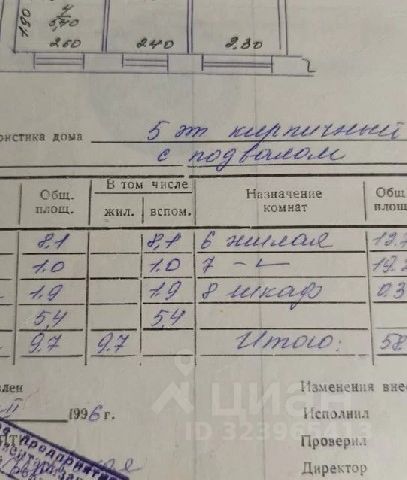 1.90
4
5,40
2.60 2.40 2.30
5 эт кирпичный
с подвалом
Общ. площ. В том числе Назначение комнат Общ.
жил. вспом.
8,1 8,1 6 жилая
1.0 1.0 7 -"-
1.9 1.9 8 шкаф 0.3
5,4 5,4
9.7 9.7 Итого: 58
II 1996 г.
Изменения
Исполнил
Проверил
Директор
циан
ID 323965413